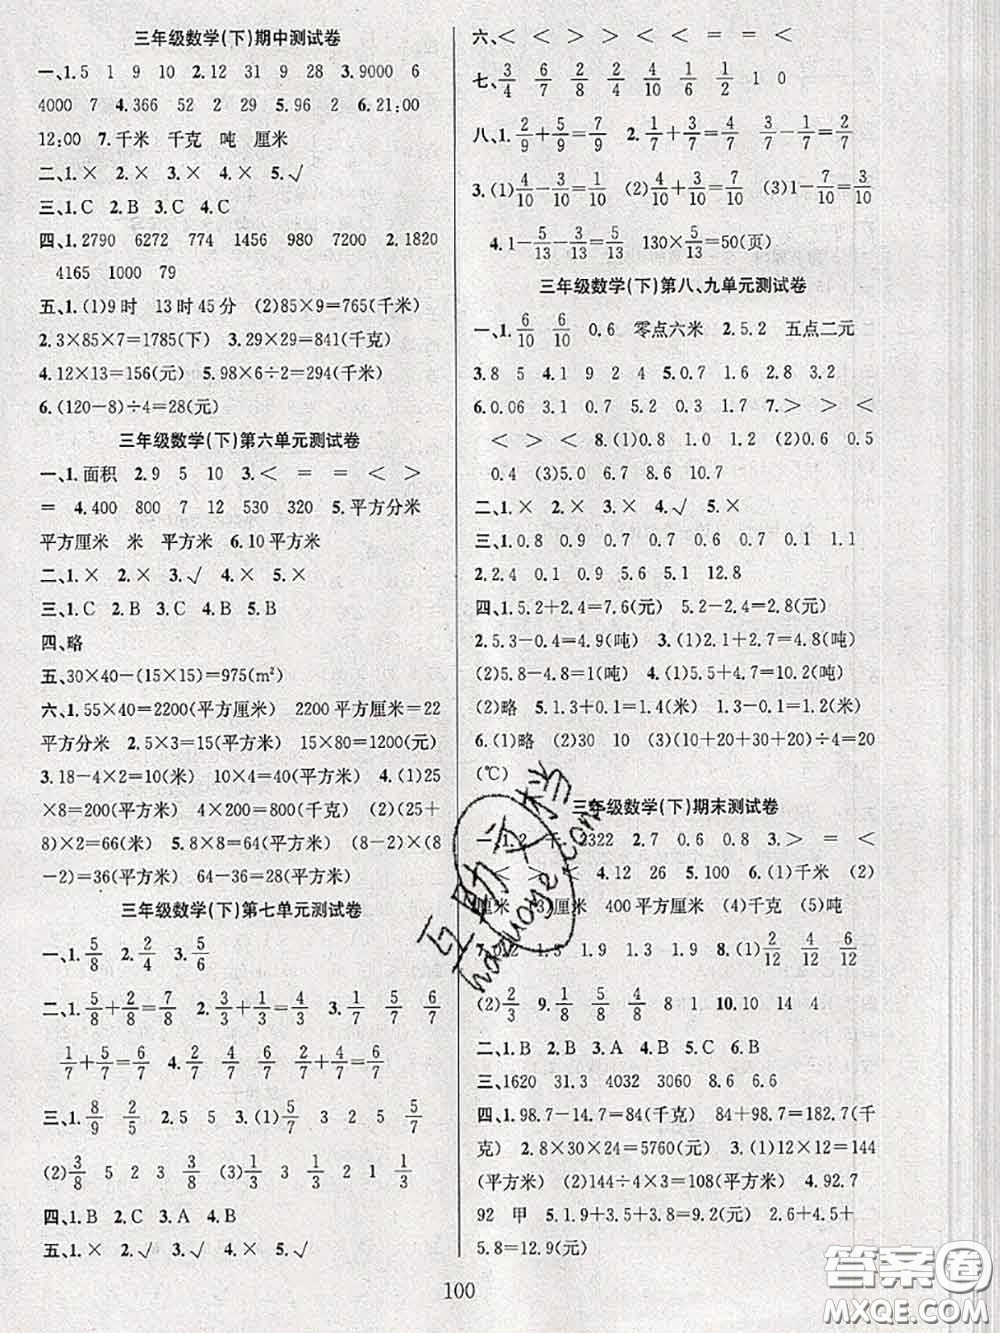 三年级数学(下)期中测试卷
一、1.5 1 9 10 2.12 31 9 28 3.9000 6
4000 7 4.366 52 2 29 5.96 2 6.21:00
12:00 7.千米 千克 吨 厘米
二、1.× 2.× 3.× 4.× 5.√
三、1.C 2.B 3.C 4.C
四、1.2790 6272 774 1456 980 7200 2.1820
4165 1000 79
五、1.(1)9时 13时45分 (2)85×9=765(千米)
2.3×85×7=1785(下) 3.29×29=841(千克)
4.12×13=156(元) 5.98×6÷2=294(千米)
6.(120-8)÷4=28(元)
三年级数学(下)第六单元测试卷
一、1.面积 2.9 5 10 3.< = = < >
= 4.400 800 7 12 530 320 5.平方分米
平方厘米 米 平方米 6.10平方米
二、1.× 2.× 3.√ 4.× 5.×
三、1.C 2.B 3.C 4.B 5.B
四、略
五、30×40-(15×15)=975(m²)
六、1.55×40=2200(平方厘米) 2200平方厘米=22
平方分米 2.5×3=15(平方米) 15×80=1200(元)
3.18-4×2=10(米) 10×4=40(平方米) 4.(1)25
×8=200(平方米) 4×200=800(千克) (2)(25+
8)×2=66(米) 5.8×8-(8-2)×(8-2)=28(平方米) (8-2)×(8
-2)=36(平方米) 64-36=28(平方米)
三年级数学(下)第七单元测试卷
一、1.5/8 2.2/4 3.5/6
二、1.5/8+2/8=7/8 2.1/3+1/3=2/3 3.1/7 5/7 6/7
1/7+5/7=6/7 4.2/7 4/7 6/7 2/7+4/7=6/7
三、1.8/9 2/5 2.5 5 3.(1)5/7 3 2 5 5/7
(2)3/8 5 2 3 (3)1/3 1/3 2/3 1 2 3
四、1.B 2.C 3.A 4.B
五、1.× 2.√ 3.√ 4.√ 5.√
六、< < > > < = = = <
七、3/4 6/7 2/8 4/10 6/8 4/10 1/2 1/2 1 0
八、1.2/9+5/9=7/9 2.1/7 4/7 3/7-1/7=2/7
3.(1)4/10-3/10=1/10 (2)4/10+3/10=7/10 (3)1-7/10=3/10
4.1-5/13-3/13=5/13 130×5/13=50(页)
三年级数学(下)第八、九单元测试卷
一、1.6/10 6/10 0.6 零点六米 2.5.2 五点二元
3.8 5 4.1 9 2 4 5.0.7 1.6 2.8 3.2
6.0.06 3.1 0.8 1.1 7.> > <
< > < 8.(1)0.8 1.0 (2)0.6 0.5
0.4 (3)5.0 6.8 8.6 10.7
二、1.× 2.× 3.× 4.√ 5.×
三、1.0.8 0.9 0.7 0.9 0.1 1.1
2.0.1 0.1 0.2 5.6 5.1 12.8
四、1.5.2+2.4=7.6(元) 5.2-2.4=2.8(元)
2.5.3-0.4=4.9(吨) 3.(1)2.1+2.7=4.8(吨)
(2)5.8-4.8=1(吨) 4.(1)5.5+4.7=10.2(米)
(2)略 5.1.3+0.1=1.4(米) 1.3-0.1=1.2(米)
6.(1)略 (2)30 10 (3)(10+20+30+20)÷4=20
(℃)
三年级数学(下)期末测试卷
2322 2.7 0.6 0.8 3.> = <
4.12 26 5.100 6.(1)千米 (2)
厘米 (3)厘米 400平方厘米 (4)千克 (5)吨
1.3 1.9 8.(1)2/12 4/12 6/12
(2)2/3 9.1/8 5/8 4/8 8 1 10.10 14 4
二、1.B 2.B 3.A 4.B 5.C 6.B
三、1620 31.3 4032 3060 8.6 6.6
四、1.98.7-14.7=84(千克) 84+98.7=182.7(千
克) 2.8×30×24=5760(元) 3.(1)12×12=144
(平方米) (2)144÷4×3=108(平方米) 4.92.7
92 甲 5.1.9+3.5+3.8=9.2(元) 2.6+4.5+
5.8=12.9(元)
100
互助文档
hdzuoye.com
答案圈
MXQE.COM